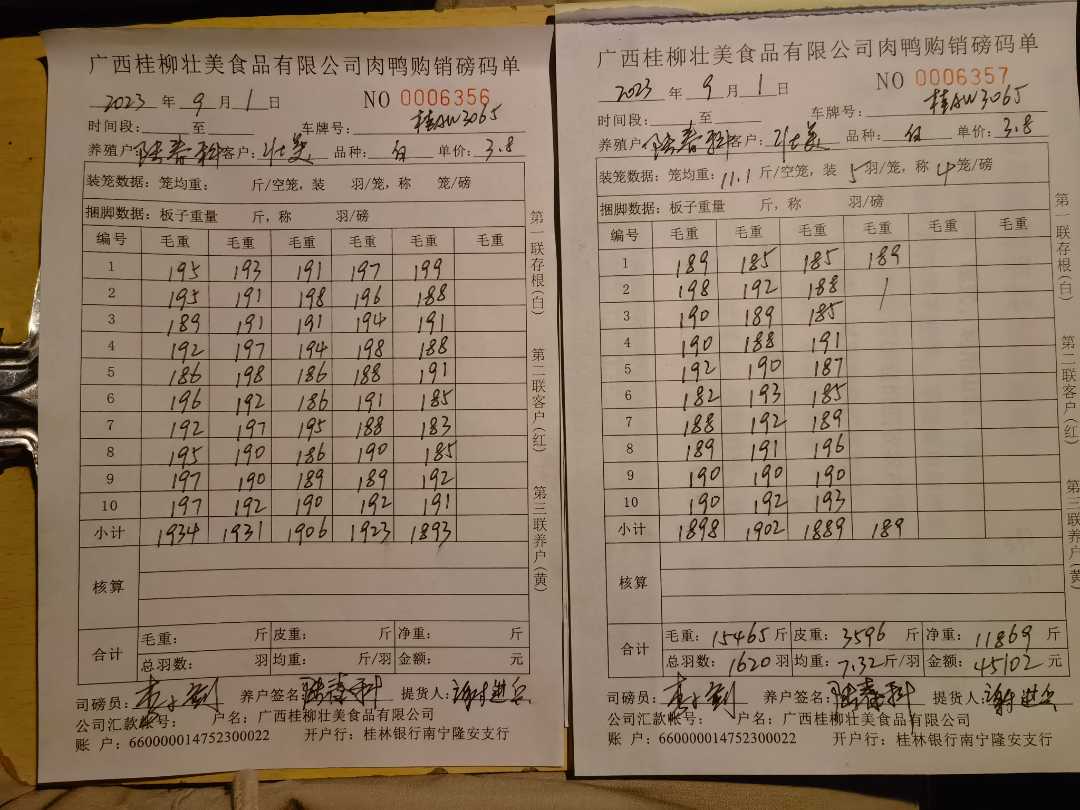 广西桂柳壮美食品有限公司肉鸭购销磅码单
2023 年 9 月 1 日 NO 0006356
时间段: 至 车牌号: 桂AW3065
养殖户: 陆春科 客户: 壮美 品种: 白 单价: 3.8
装笼数据: 笼均重: 斤/空笼, 装 羽/笼, 称 笼/磅
捆脚数据: 板子重量 斤, 称 羽/磅
编号 毛重 毛重 毛重 毛重 毛重 毛重
1 195 193 191 197 199
2 195 191 198 196 188
3 189 191 191 194 191
4 192 197 194 198 188
5 186 198 186 188 191
6 196 192 186 191 185
7 192 197 195 188 183
8 195 190 186 190 185
9 197 190 189 189 192
10 197 192 190 192 191
小计 1934 1931 1906 1923 1893
核算
合计 毛重: 斤 皮重: 斤 净重: 斤
总羽数: 羽 均重: 斤/羽 金额: 元
司磅员: 养户签名: 陆春科 提货人:
公司汇款帐号: 户名: 广西桂柳壮美食品有限公司
账 户: 660000014752300022 开户行: 桂林银行南宁隆安支行
第一联存根(白) 第二联客户(红) 第三联养户(黄)
广西桂柳壮美食品有限公司肉鸭购销磅码单
2023 年 9 月 1 日 NO 0006357
时间段: 至 车牌号: 桂AW3065
养殖户: 陆春科 客户: 壮美 品种: 白 单价: 3.8
装笼数据: 笼均重: 11.1 斤/空笼, 装 5 羽/笼, 称 4 笼/磅
捆脚数据: 板子重量 斤, 称 羽/磅
编号 毛重 毛重 毛重 毛重 毛重 毛重
1 189 185 185 189
2 198 192 188 /
3 190 189 185
4 190 188 191
5 192 190 187
6 182 193 185
7 188 192 189
8 189 191 196
9 190 190 190
10 190 192 193
小计 1898 1902 1889 189
核算
合计 毛重: 15465 斤 皮重: 3596 斤 净重: 11869 斤
总羽数: 1620 羽 均重: 7.32 斤/羽 金额: 45102 元
司磅员: 养户签名: 陆春科 提货人:
公司汇款帐号: 户名: 广西桂柳壮美食品有限公司
账 户: 660000014752300022 开户行: 桂林银行南宁隆安支行
第一联存根(白) 第二联客户(红) 第三联养户(黄)